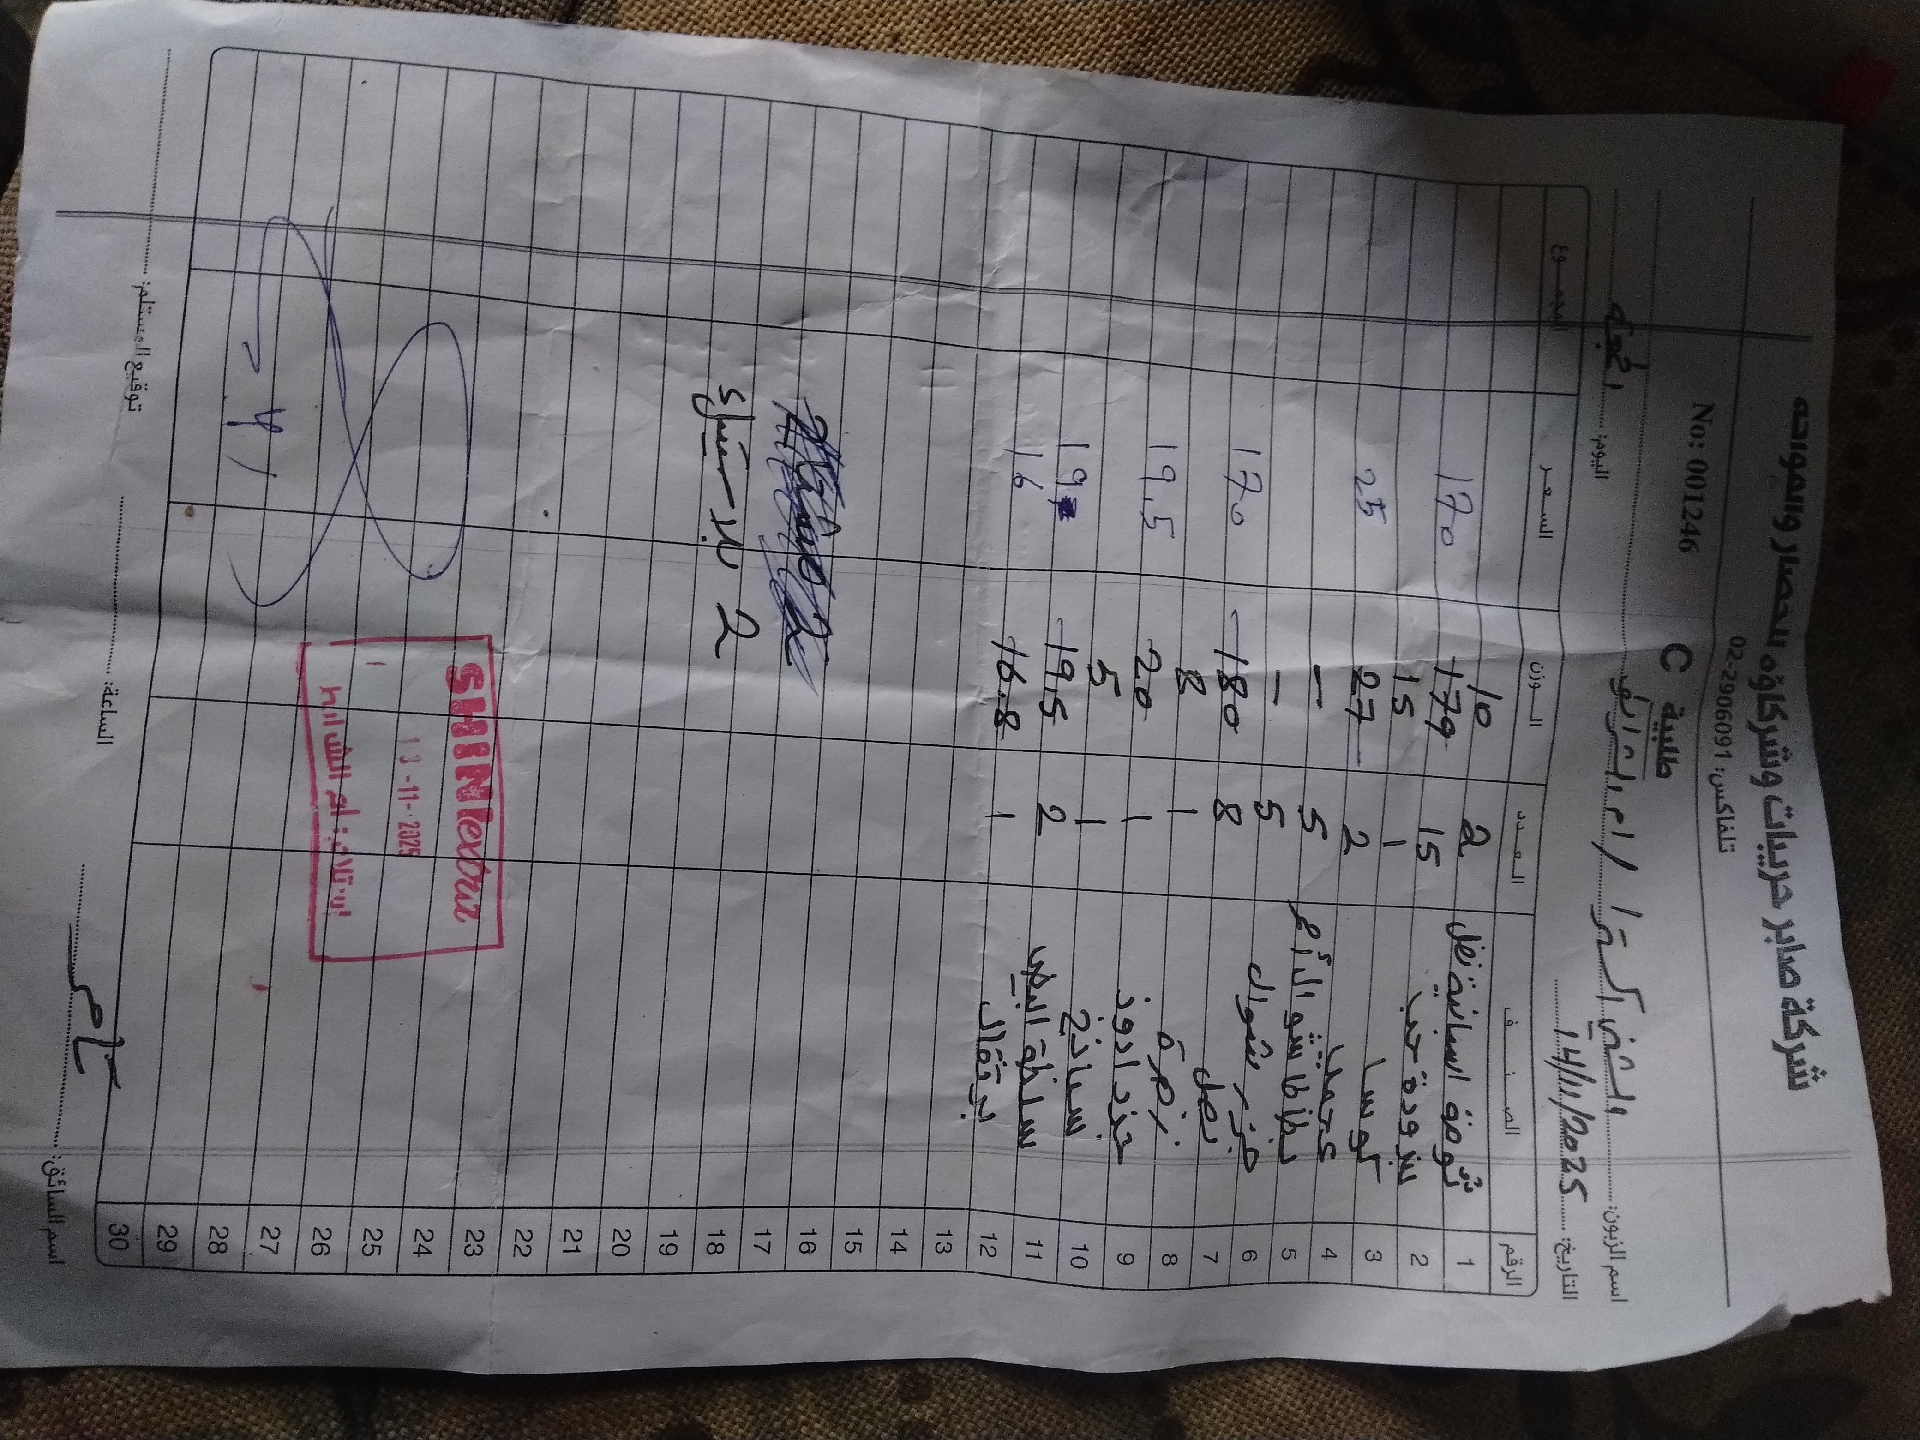 شركة صابر حريبات وشركاؤه للخضار والفواكه
تلفاكس: 02-2906091
No: 001246
طلبية C
اسم الزبون: الشني اكسترا / ام الشرايط
اليوم:
التاريخ: 14/11/2025
الرقم الصنف العدد الوزن السعر المجموع
1 ثومة اسبانية نخل 2 10
2 بندورة حب 15 179 170
3 كوسا 1 15
4 عجمي 2 27 25
5 بطاطا شوال أع 5 –
6 جزر شوال 5 –
7 بصل 8 180 170
8 زهرة 1 8
9 جزر ادوز 1 20 19.5
10 سبانخ 1 5
11 سلطة ابيض 2 19.5 19
12 برتقال 1 16.8 16
13
14
15
16
17
18 2
19
20
21
22
23
24
25
26
27
28
29
30
SHINIextra
13-11-2025
اسم السائق:
الساعة:
توقيع المستلم: